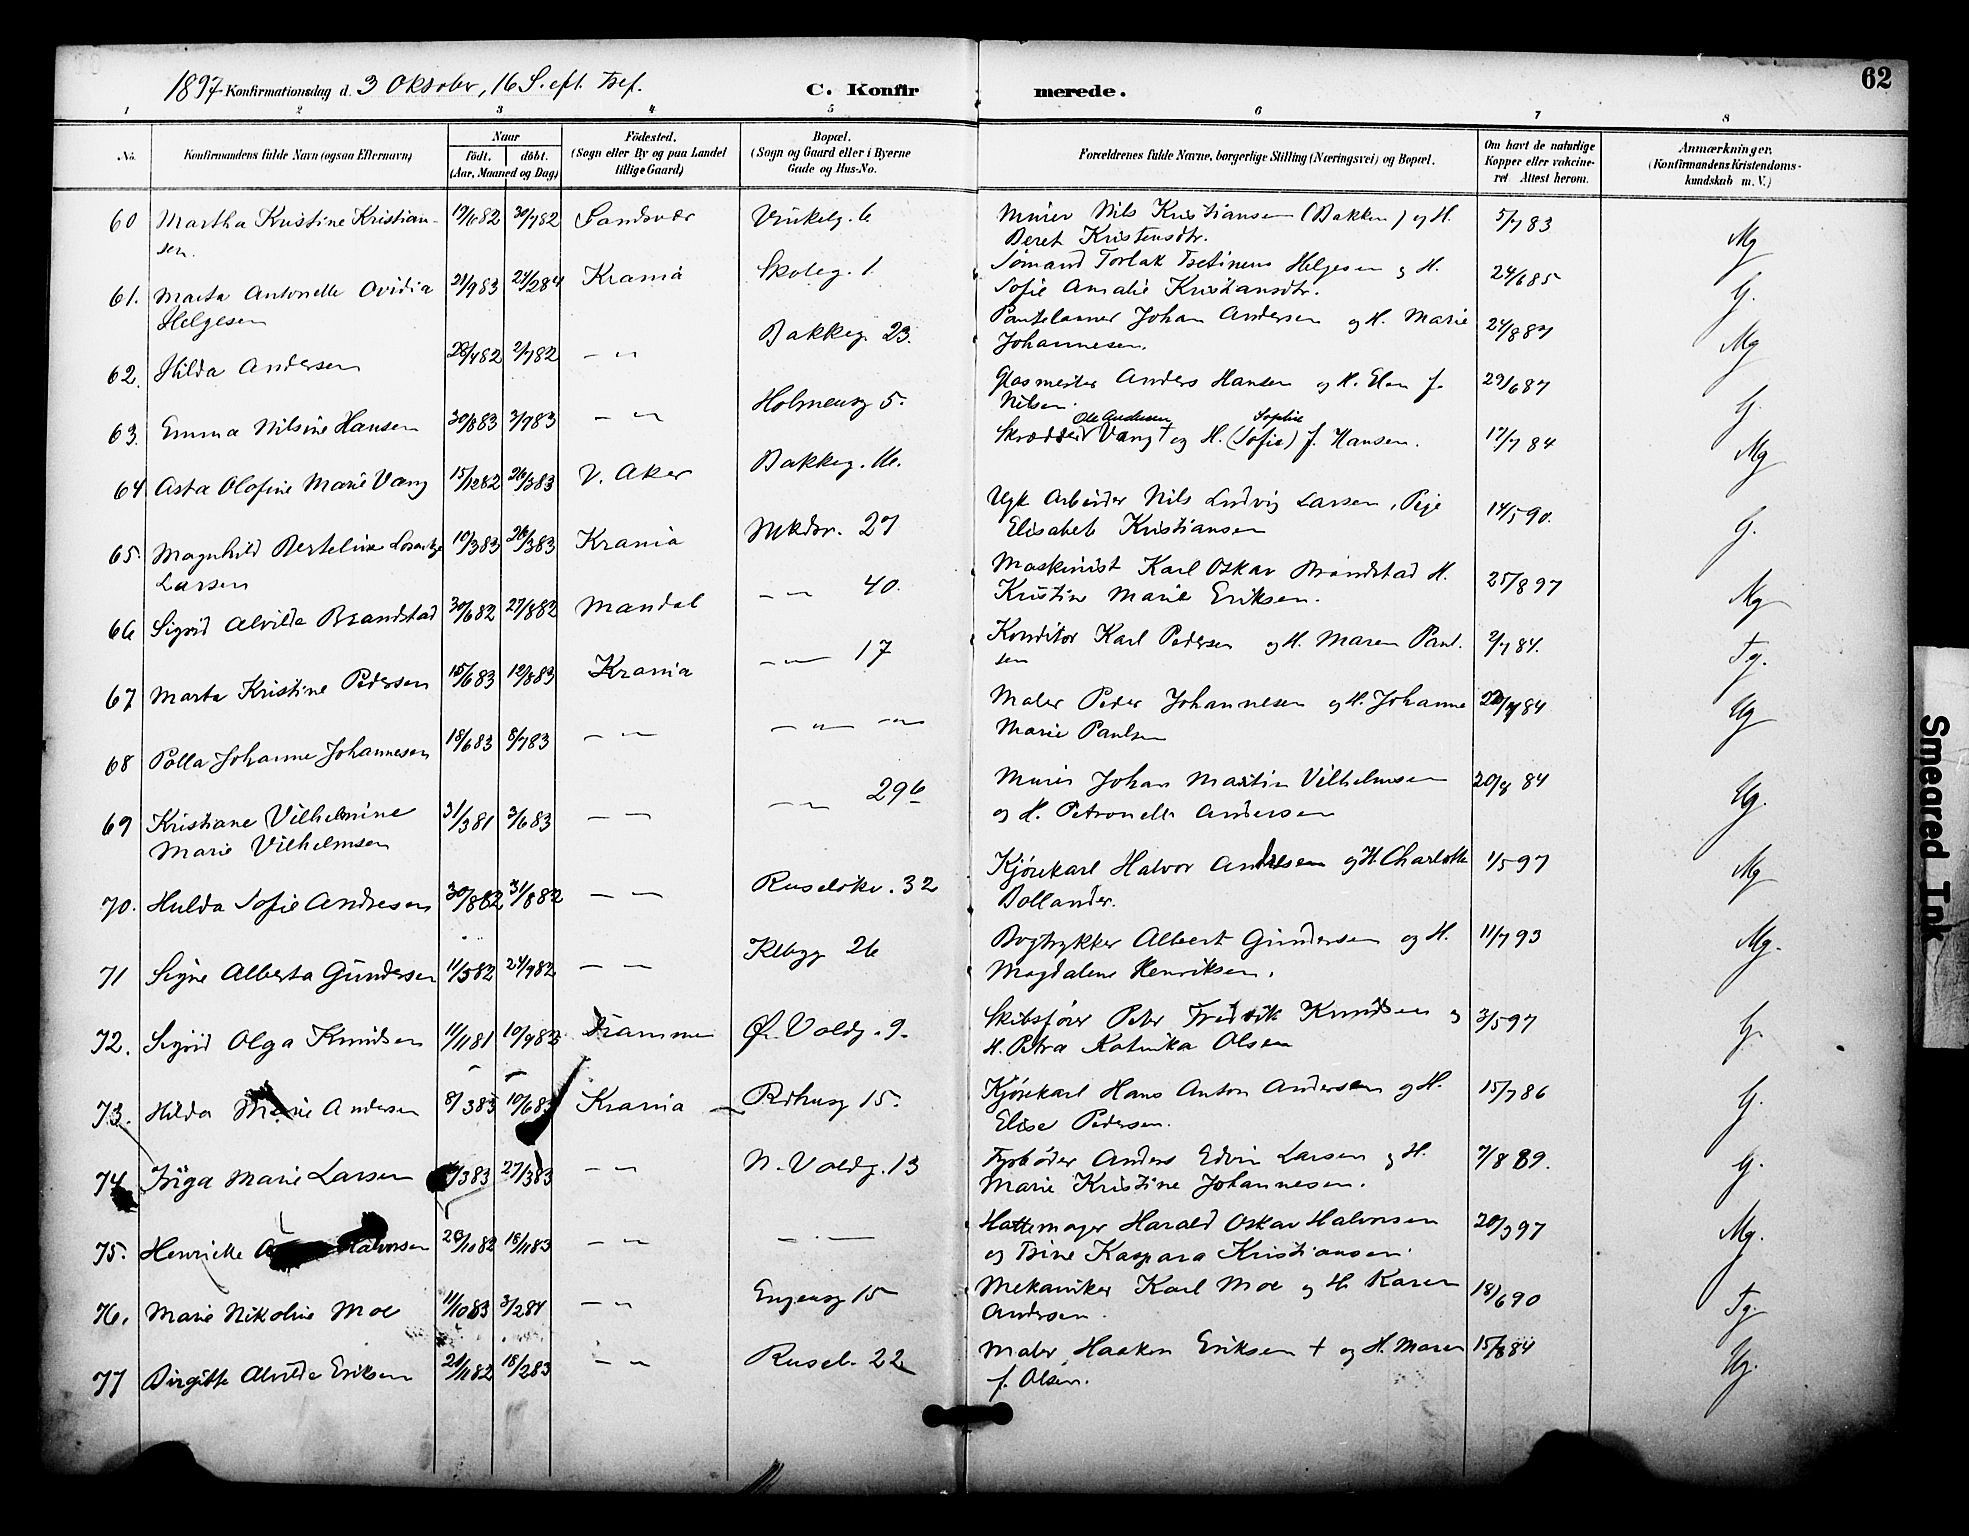 1897 Konfirmationsdag d. 3 Oktober, 16 S. eft. Tref.
C. Konfirmerede.
62
1 2 3 4 5 6 7 8
No. Konfirmandens fulde Navn (ogsaa Efternavn) Naar født. døbt. (Aar, Maaned og Dag) Fødested. (Sogn eller By og paa Landet tillige Gaard) Bopæl. (Sogn og Gaard eller i Byerne Gade og Hus-No. Forældrenes fulde Navne, borgerlige Stilling (Næringsvei) og Bopæl. Om havt de naturlige Kopper eller vaccineret Attest herom. Anmærkninger. (Konfirmandens Kristendomskundskab m. V.)
60 Martha Kristine Kristian- 30/782 Sandsvær Vinkelg. 6 Murer Nils Kristiansen (Bakken) og H. 5/783 Mg
sen. Beret Kristensdtr.
61. Marta Antonette Ovidia 21/983 24/284 Krania Skoleg. 1. Sømand Torlak Helgesen og H. 24/685 G.
Helgesen Sofie Amalie Kristiansdtr.
62. Hilda Andersen 28/482 2/782 — " Bakkeg. 23. Johan Andersen og H. Marie Mg
Johannesen.
63. Emma Nilsine Hansen 30/883 — " Holmensg 5. Glasmester Anders Hansen og H. f. 29/687 G.
Nilsen.
64 Asta Olofine Marie Vang 15/1282 26/383 V. Aker Bakkeg. 16. Skrædder Ole Andersen Vang † og H. (Sofie) Sophie f. Hansen. 17/784 Mg
65. Magnhild Berteline Larsen 19/383 26/383 Krania 27 Arbeider Nils Ludvig Larsen, Pige 14/590. G.
Elisabet Kristiansen
66 Sigrid Alvilde Brandstad 30/682 27/882 Mandal — " 40. Maskinist Karl Oskar Brandstad H. 25/897 Mg
Kristine Marie Eriksen.
67 Marta Kristine Pedersen 15/683 12/883 Krania — " 17 Konditor Karl Pedersen og H. Maren Paul- 2/784. Tg.
sen
68 Palla Johanne Johannesen 18/683 8/783 — " — " — " Maler Peder Johannesen og H. Johanne Ug
Marie Paulsen
69 Kristiane Vilhelmine 31/381 3/683 — " — " 29 b Murer Johan Martin Vilhelmsen Ug.
Marie Vilhelmsen og H. Petronella Andersen
70. Hulda Sofie Andresen 30/882 31/882 — " Ruseløkv. 32 Kjørekarl Halvor Andresen og H. Charlotte 1/597 Mg
Bollander.
71 Signe Alberta Gundersen 11/582 24/982 — " 26 Bogtrykker Albert Gundersen og H. 11/793 Mg.
Magdalene Henriksen.
72. Sigrid Olga Knudsen 11/1181 Drammen Ø. Voldg. 9. Skibsfører Peter Fredrik Knudsen og 3/597 G.
H. Petra Katinka Olsen
73. Hilda Marie Andersen 8/383 10/683 Krania Rdhusg 15. Kjørekarl Hans Anton Andersen og H. 15/786 G.
Elise Pedersen.
74 Inga Marie Larsen 27/383 — " N. Voldg. 13 Fyrbøder Anders Edvin Larsen og H. 7/889. G.
Marie Kristine Johannesen.
75. Henriette Halvorsen 18/1183 — " — " — Hattemager Harald Oskar Halvorsen 20/397 Mg.
og Trine Kaspara Kristiansen.
76. Marie Nikoline Moe 11/1083 3/284 — " Engensg 15 Mekaniker Karl Moe og H. Karen 18/690 Tg.
Andersen.
77 Birgitte Alvilde Eriksen 21/1182 18/283 — " Rusel. 22 Maler Haakon Eriksen † og H. Maren 15/884 Ug.
f. Olsen.
Smeared Ink